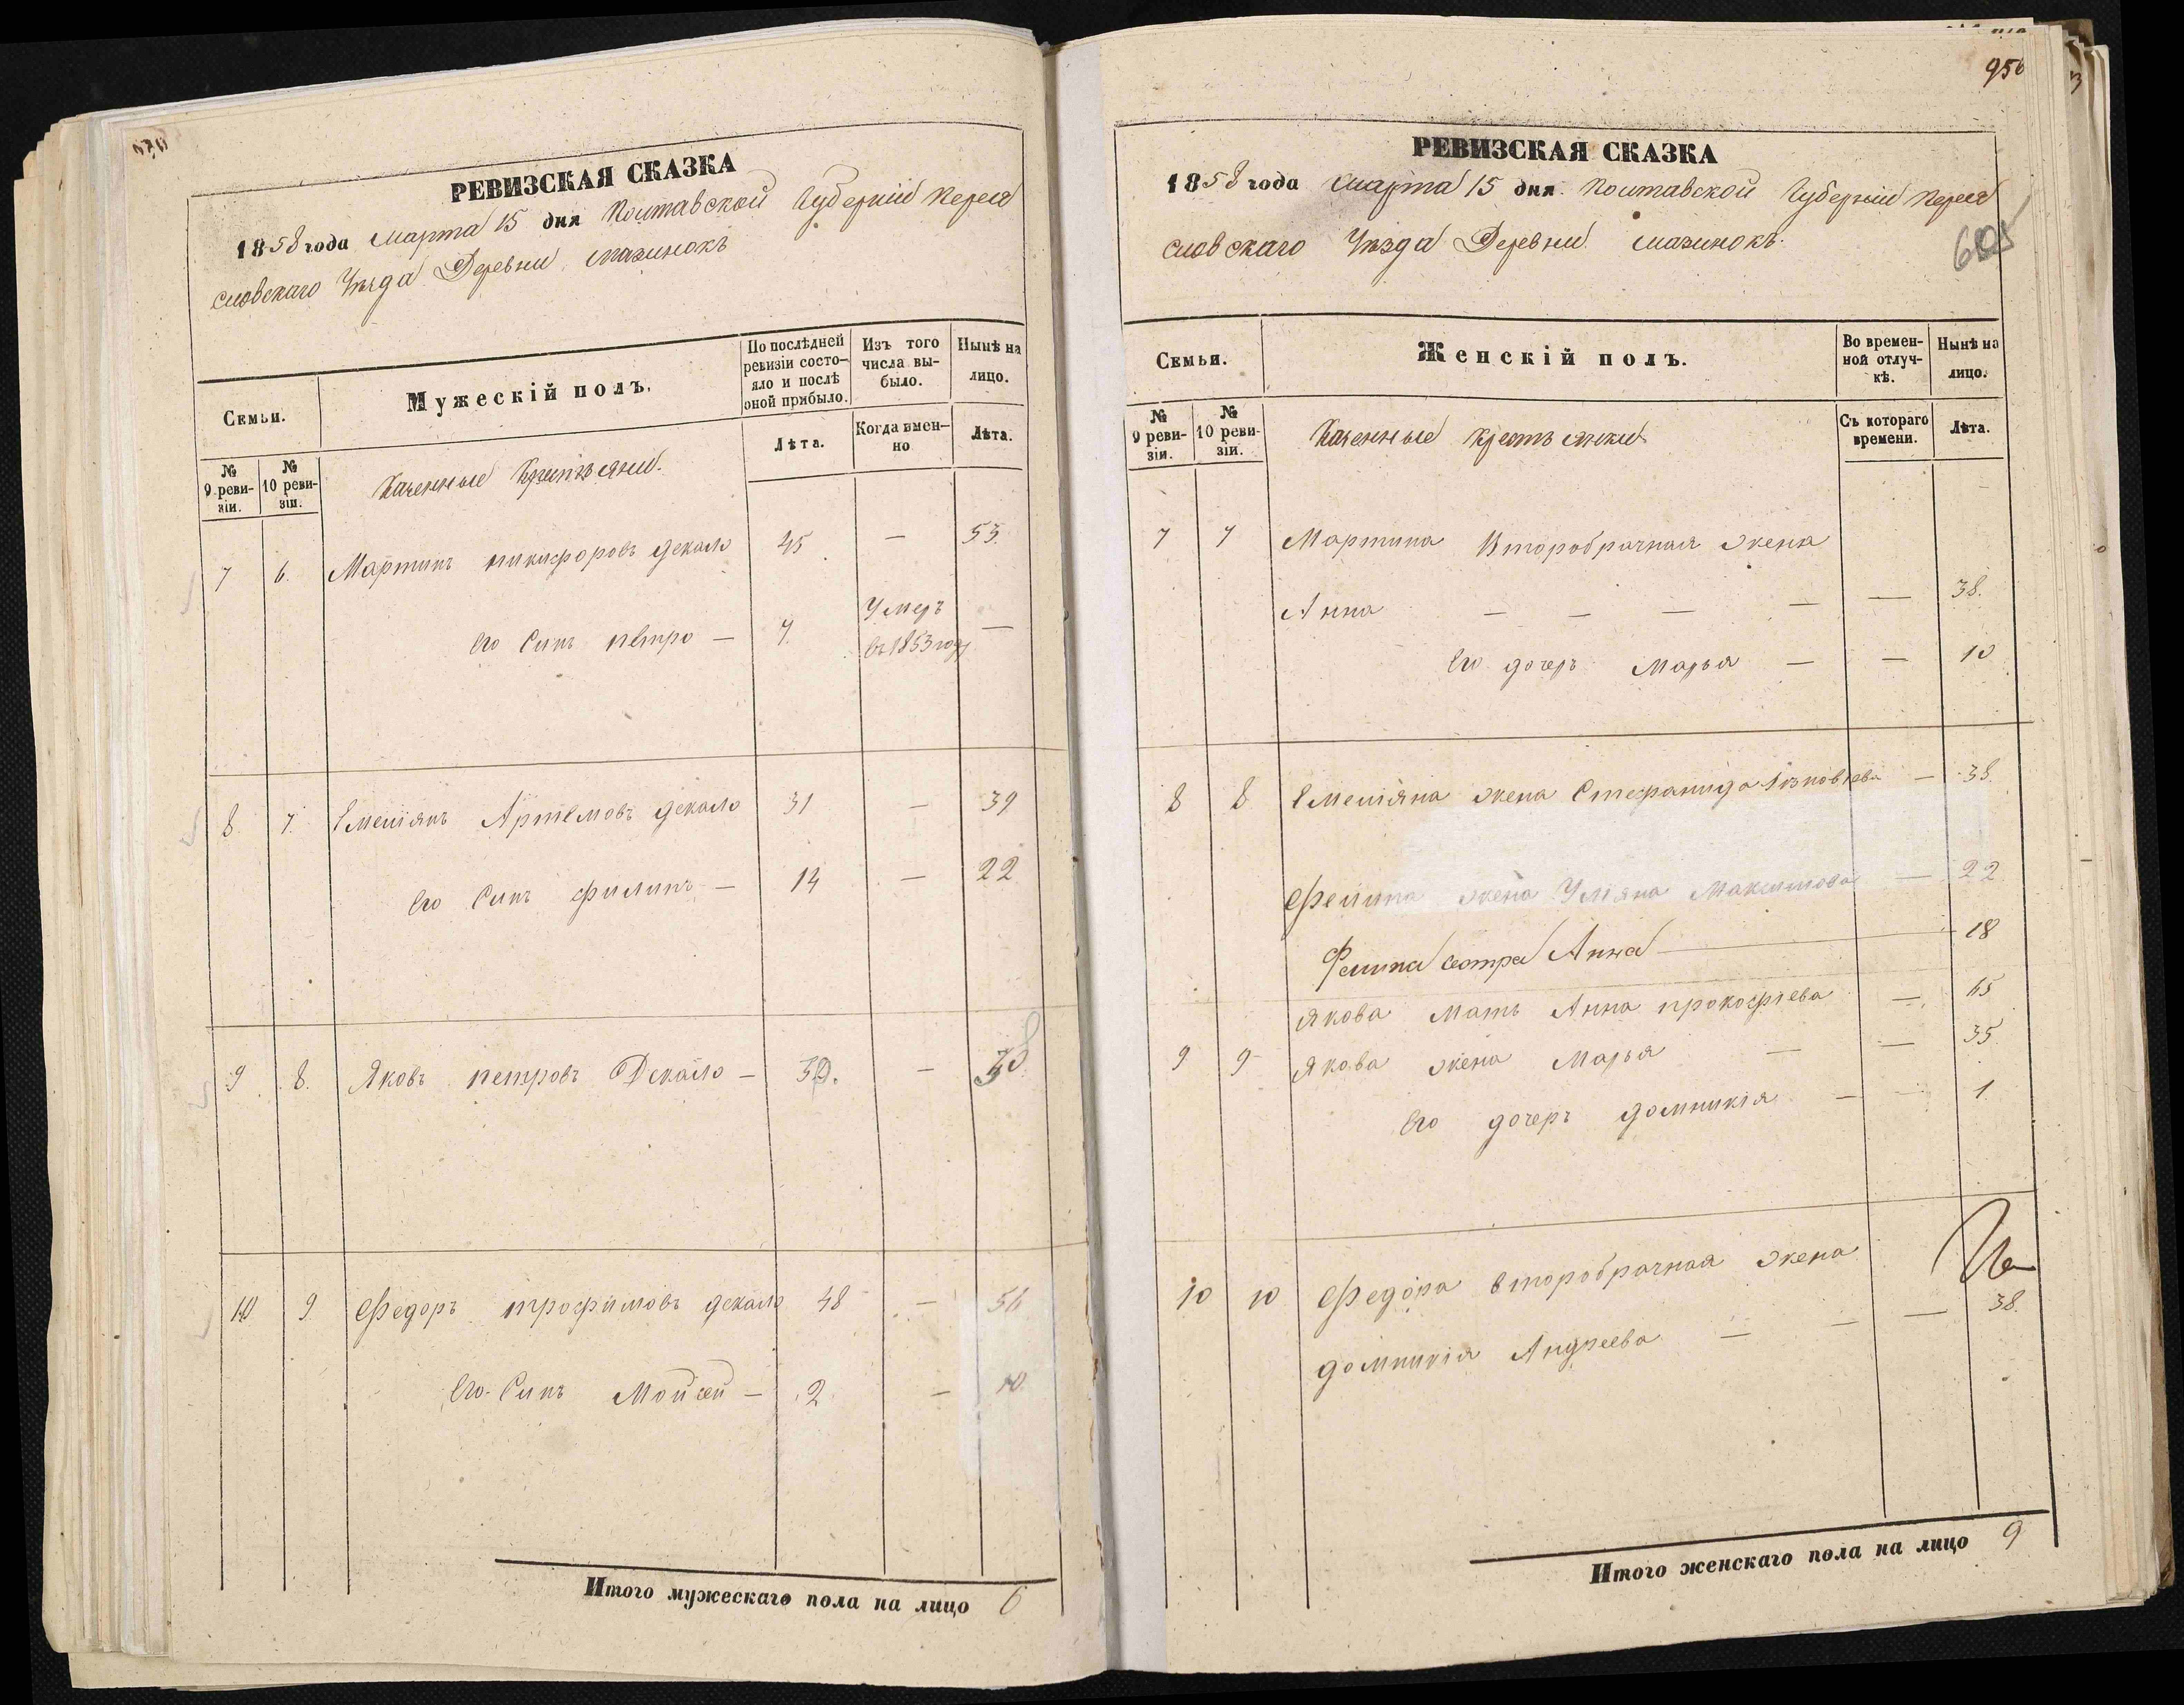 РЕВИЗСКАЯ СКАЗКА
1858 года Марта 15 дня Полтавской Губерніи Перея
словскаго Уѣзда Деревни Мазинокъ
Семьи.
Мужескій полъ.
По послѣдней ревизіи состо-
яло и послѣ
оной прибыло.
Изъ того
числа вы-
было.
Нынѣ на
лицо.
№
9 реви-
зіи.
№
10 реви-
зіи.
Казенные Крестьяни.
Лѣта.
Когда имен-
но
Лѣта.
7 6. Мартинъ никифоровъ декало 45 — 53.
Его Синъ петро — 7. Умеръ
въ 1853 году —
8. 7. Емеліянъ Артемовъ декало 31 — 39
Его Синъ филипъ — 14 — 22
9. 8. Яковъ петровъ Декало — 30. —
10 9. Федоръ трофимовъ декало 48 — 56
Его Синъ Мойсей — 2. — 10.
Итого мужескаго пола на лицо 6
956
РЕВИЗСКАЯ СКАЗКА
1858 года Марта 15 дня Полтавской Губерніи Перея
словскаго Уѣзда Деревни Мазинокъ.
605
Семьи.
Женскій полъ.
Во времен-
ной отлуч-
кѣ.
Нынѣ на
лицо.
№
9 реви-
зіи.
№
10 реви-
зіи.
Казенные Крестьянки
Съ котораго
времени.
Лѣта.
7 7 Мартина Второбрачная жена
Анна — — — — — 38.
Его дочеръ Марья — — 10
8 8 Емеліяна жена Стефанида — 38.
Филипа жена Уліяна Максимова — 22
Филипа сестра Анна — 18
Якова Мать Анна прокофіева — 65
9 9 Якова жена Марья — — 35.
Его дочеръ домникія — — 1
10 10 Федора второбрачная жена
домникія Андреева — — — 38.
Итого женскаго пола на лицо 9